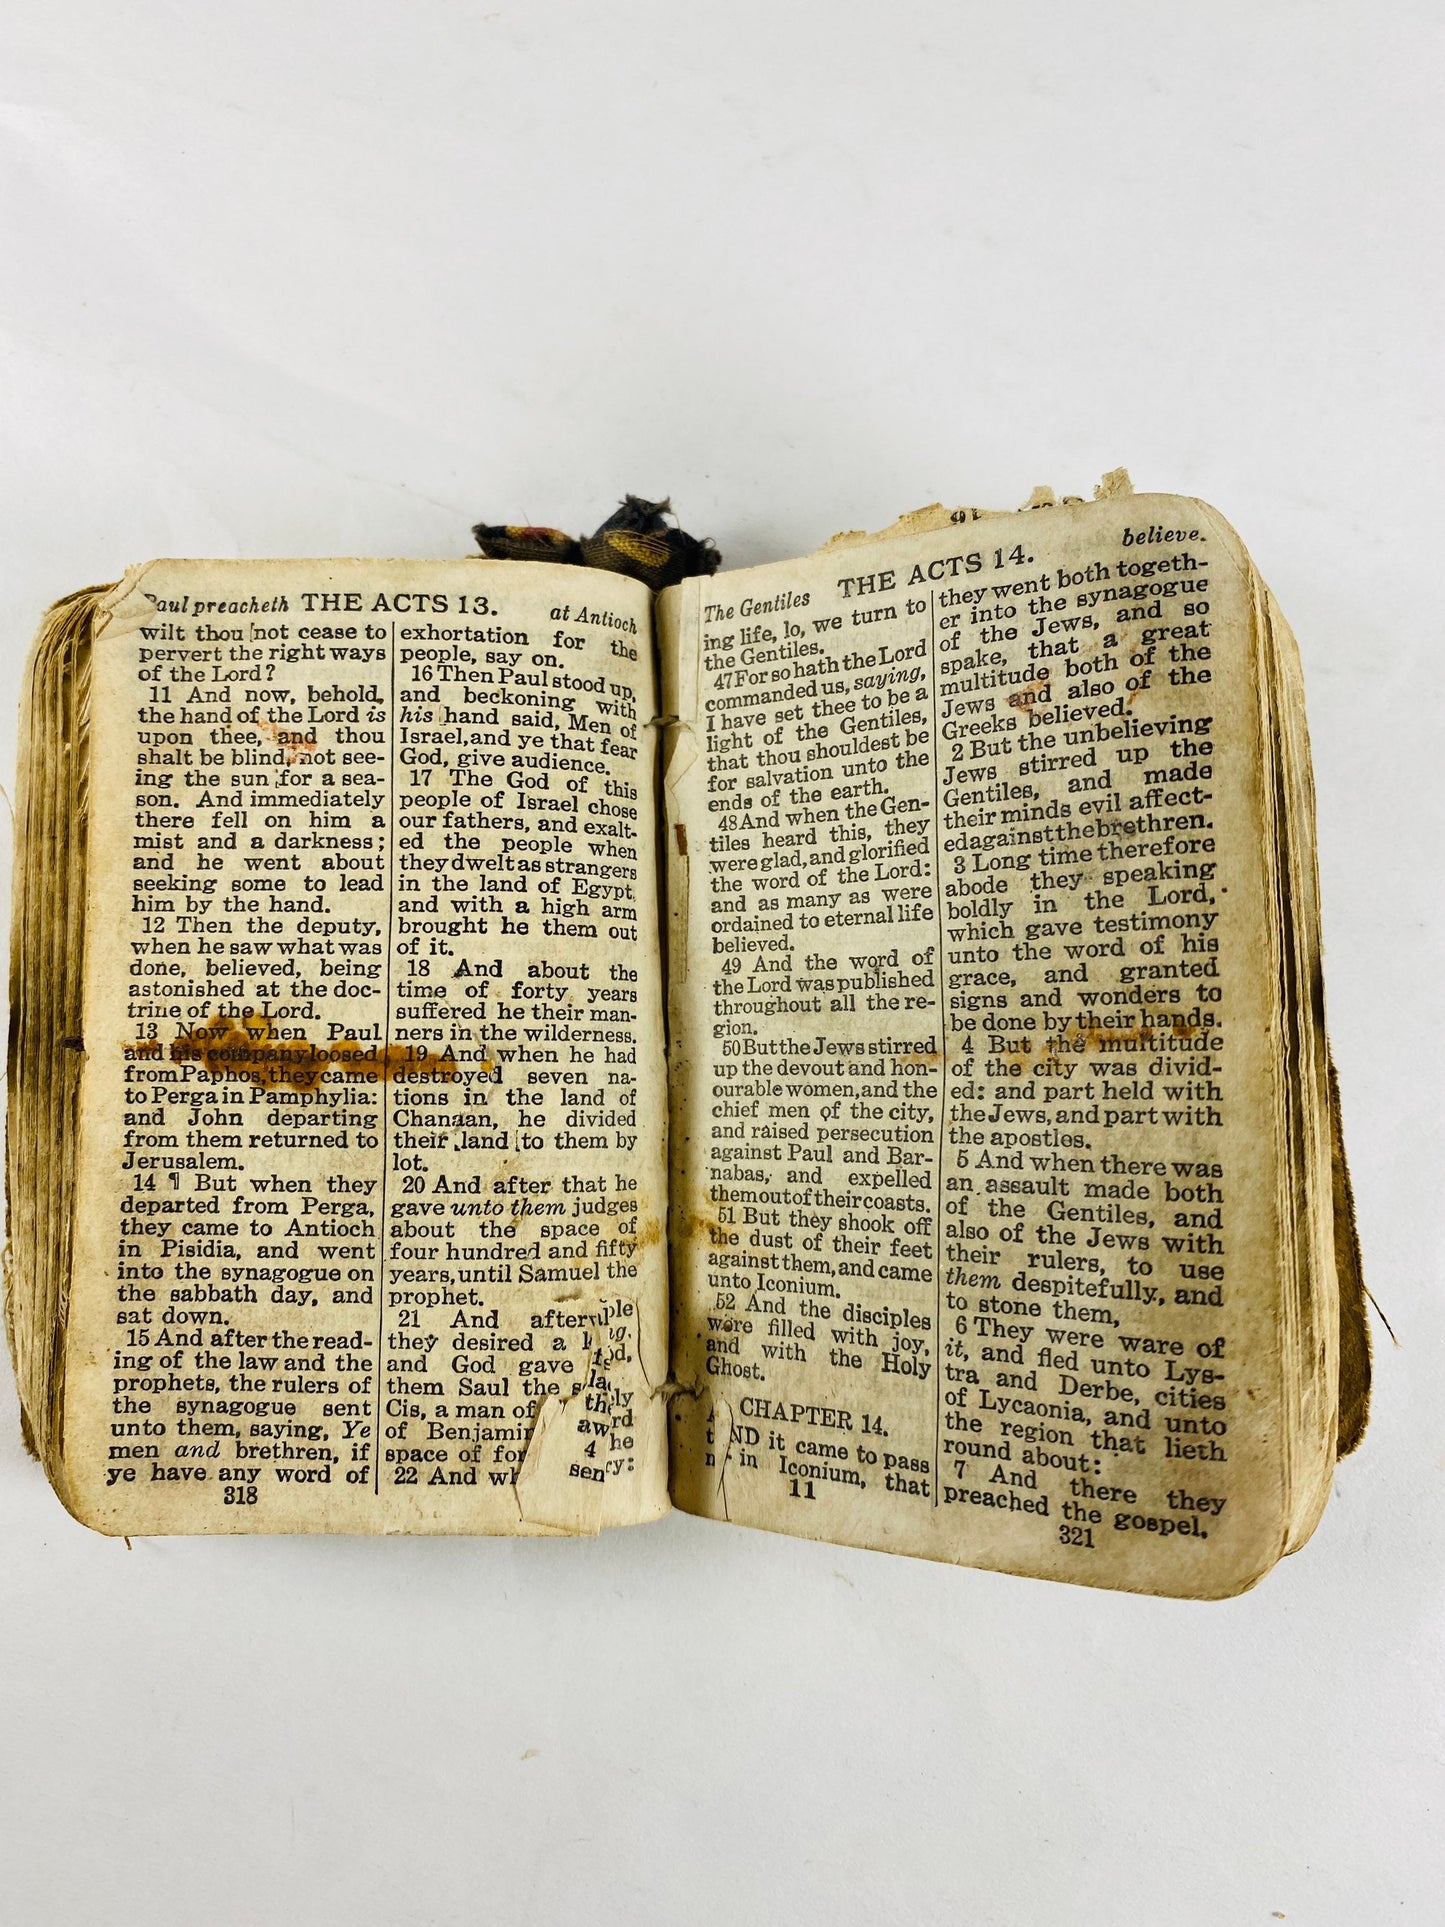 Paul preacheth THE ACTS 13. at Antioch
wilt thou not cease to
pervert the right ways
of the Lord?
11 And now, behold,
the hand of the Lord is
upon thee, and thou
shalt be blind, not see-
ing the sun for a sea-
son. And immediately
there fell on him a
mist and a darkness;
and he went about
seeking some to lead
him by the hand.
12 Then the deputy,
when he saw what was
done, believed, being
astonished at the doc-
trine of the Lord.
13 Now when Paul
and his company loosed
from Paphos, they came
to Perga in Pamphylia:
and John departing
from them returned to
Jerusalem.
14 ¶ But when they
departed from Perga,
they came to Antioch
in Pisidia, and went
into the synagogue on
the sabbath day, and
sat down.
15 And after the read-
ing of the law and the
prophets, the rulers of
the synagogue sent
unto them, saying, Ye
men and brethren, if
ye have any word of
exhortation for the
people, say on.
16 Then Paul stood up,
and beckoning with
his hand said, Men of
Israel, and ye that fear
God, give audience.
17 The God of this
people of Israel chose
our fathers, and exalt-
ed the people when
they dwelt as strangers
in the land of Egypt,
and with a high arm
brought he them out
of it.
18 And about the
time of forty years
suffered he their man-
ners in the wilderness.
19 And when he had
destroyed seven na-
tions in the land of
Chanaan, he divided
their land to them by
lot.
20 And after that he
gave unto them judges
about the space of
four hundred and fifty
years, until Samuel the
prophet.
21 And after
they desired a
and God gave
them Saul the
Cis, a man of
of Benjamin
space of for
22 And wh
318
The Gentiles THE ACTS 14. believe.
ing life, lo, we turn to
the Gentiles.
47 For so hath the Lord
commanded us, saying,
I have set thee to be a
light of the Gentiles,
that thou shouldest be
for salvation unto the
ends of the earth.
48 And when the Gen-
tiles heard this, they
were glad, and glorified
the word of the Lord:
and as many as were
ordained to eternal life
believed.
49 And the word of
the Lord was published
throughout all the re-
gion.
50 But the Jews stirred
up the devout and hon-
ourable women, and the
chief men of the city,
and raised persecution
against Paul and Bar-
nabas, and expelled
them out of their coasts.
51 But they shook off
the dust of their feet
against them, and came
unto Iconium.
52 And the disciples
were filled with joy,
and with the Holy
Ghost.
CHAPTER 14.
ND it came to pass
in Iconium, that
11
they went both togeth-
er into the synagogue
of the Jews, and so
spake, that a great
multitude both of the
Jews and also of the
Greeks believed.
2 But the unbelieving
Jews stirred up the
Gentiles, and made
their minds evil affect-
ed against the brethren.
3 Long time therefore
abode they speaking
boldly in the Lord,
which gave testimony
unto the word of his
grace, and granted
signs and wonders to
be done by their hands.
4 But the multitude
of the city was divid-
ed: and part held with
the Jews, and part with
the apostles.
5 And when there was
an assault made both
of the Gentiles, and
also of the Jews with
their rulers, to use
them despitefully, and
to stone them,
6 They were ware of
it, and fled unto Lys-
tra and Derbe, cities
of Lycaonia, and unto
the region that lieth
round about:
7 And there they
preached the gospel.
321